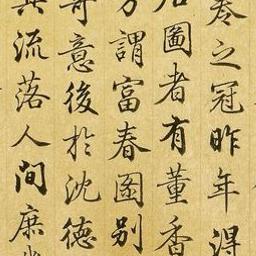 卷之冠昨年得
居圖者有董香
方謂富春圖別
寄意後於沈德
其流落人間庶